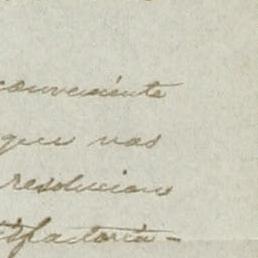 conveniente
que nos
resolucion
tisfactoria-